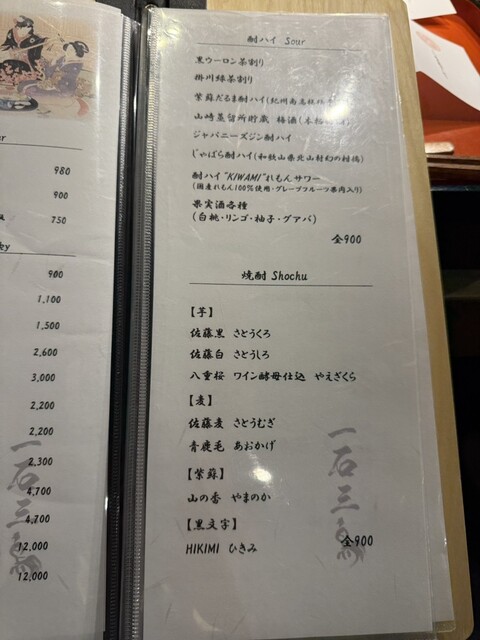 980
900
750
900
1,100
1,500
2,600
3,000
2,200
2,200
2,300
4,700
4,700
12,000
12,000
酎ハイ Sour
黒ウーロン茶割り
掛川緑茶割り
紫蘇だるま酎ハイ(紀州南高梅
山崎蒸留所貯蔵 梅酒
ジャパニーズジン酎ハイ
じゃばら酎ハイ(和歌山県北山村幻の柑橘)
酎ハイ"KIWAMI"れもんサワー
(国産れもん100%使用・グレープフルーツ果肉入り)
果実酒各種
(白桃・リンゴ・柚子・グアバ)
全900
焼酎 Shochu
【芋】
佐藤黒 さとうくろ
佐藤白 さとうしろ
八重桜 ワイン酵母仕込 やえざくら
【麦】
佐藤麦 さとうむぎ
青鹿毛 あおかげ
【紫蘇】
山の香 やまのか
【黒文字】
HIKIMI ひきみ
全900
一石三